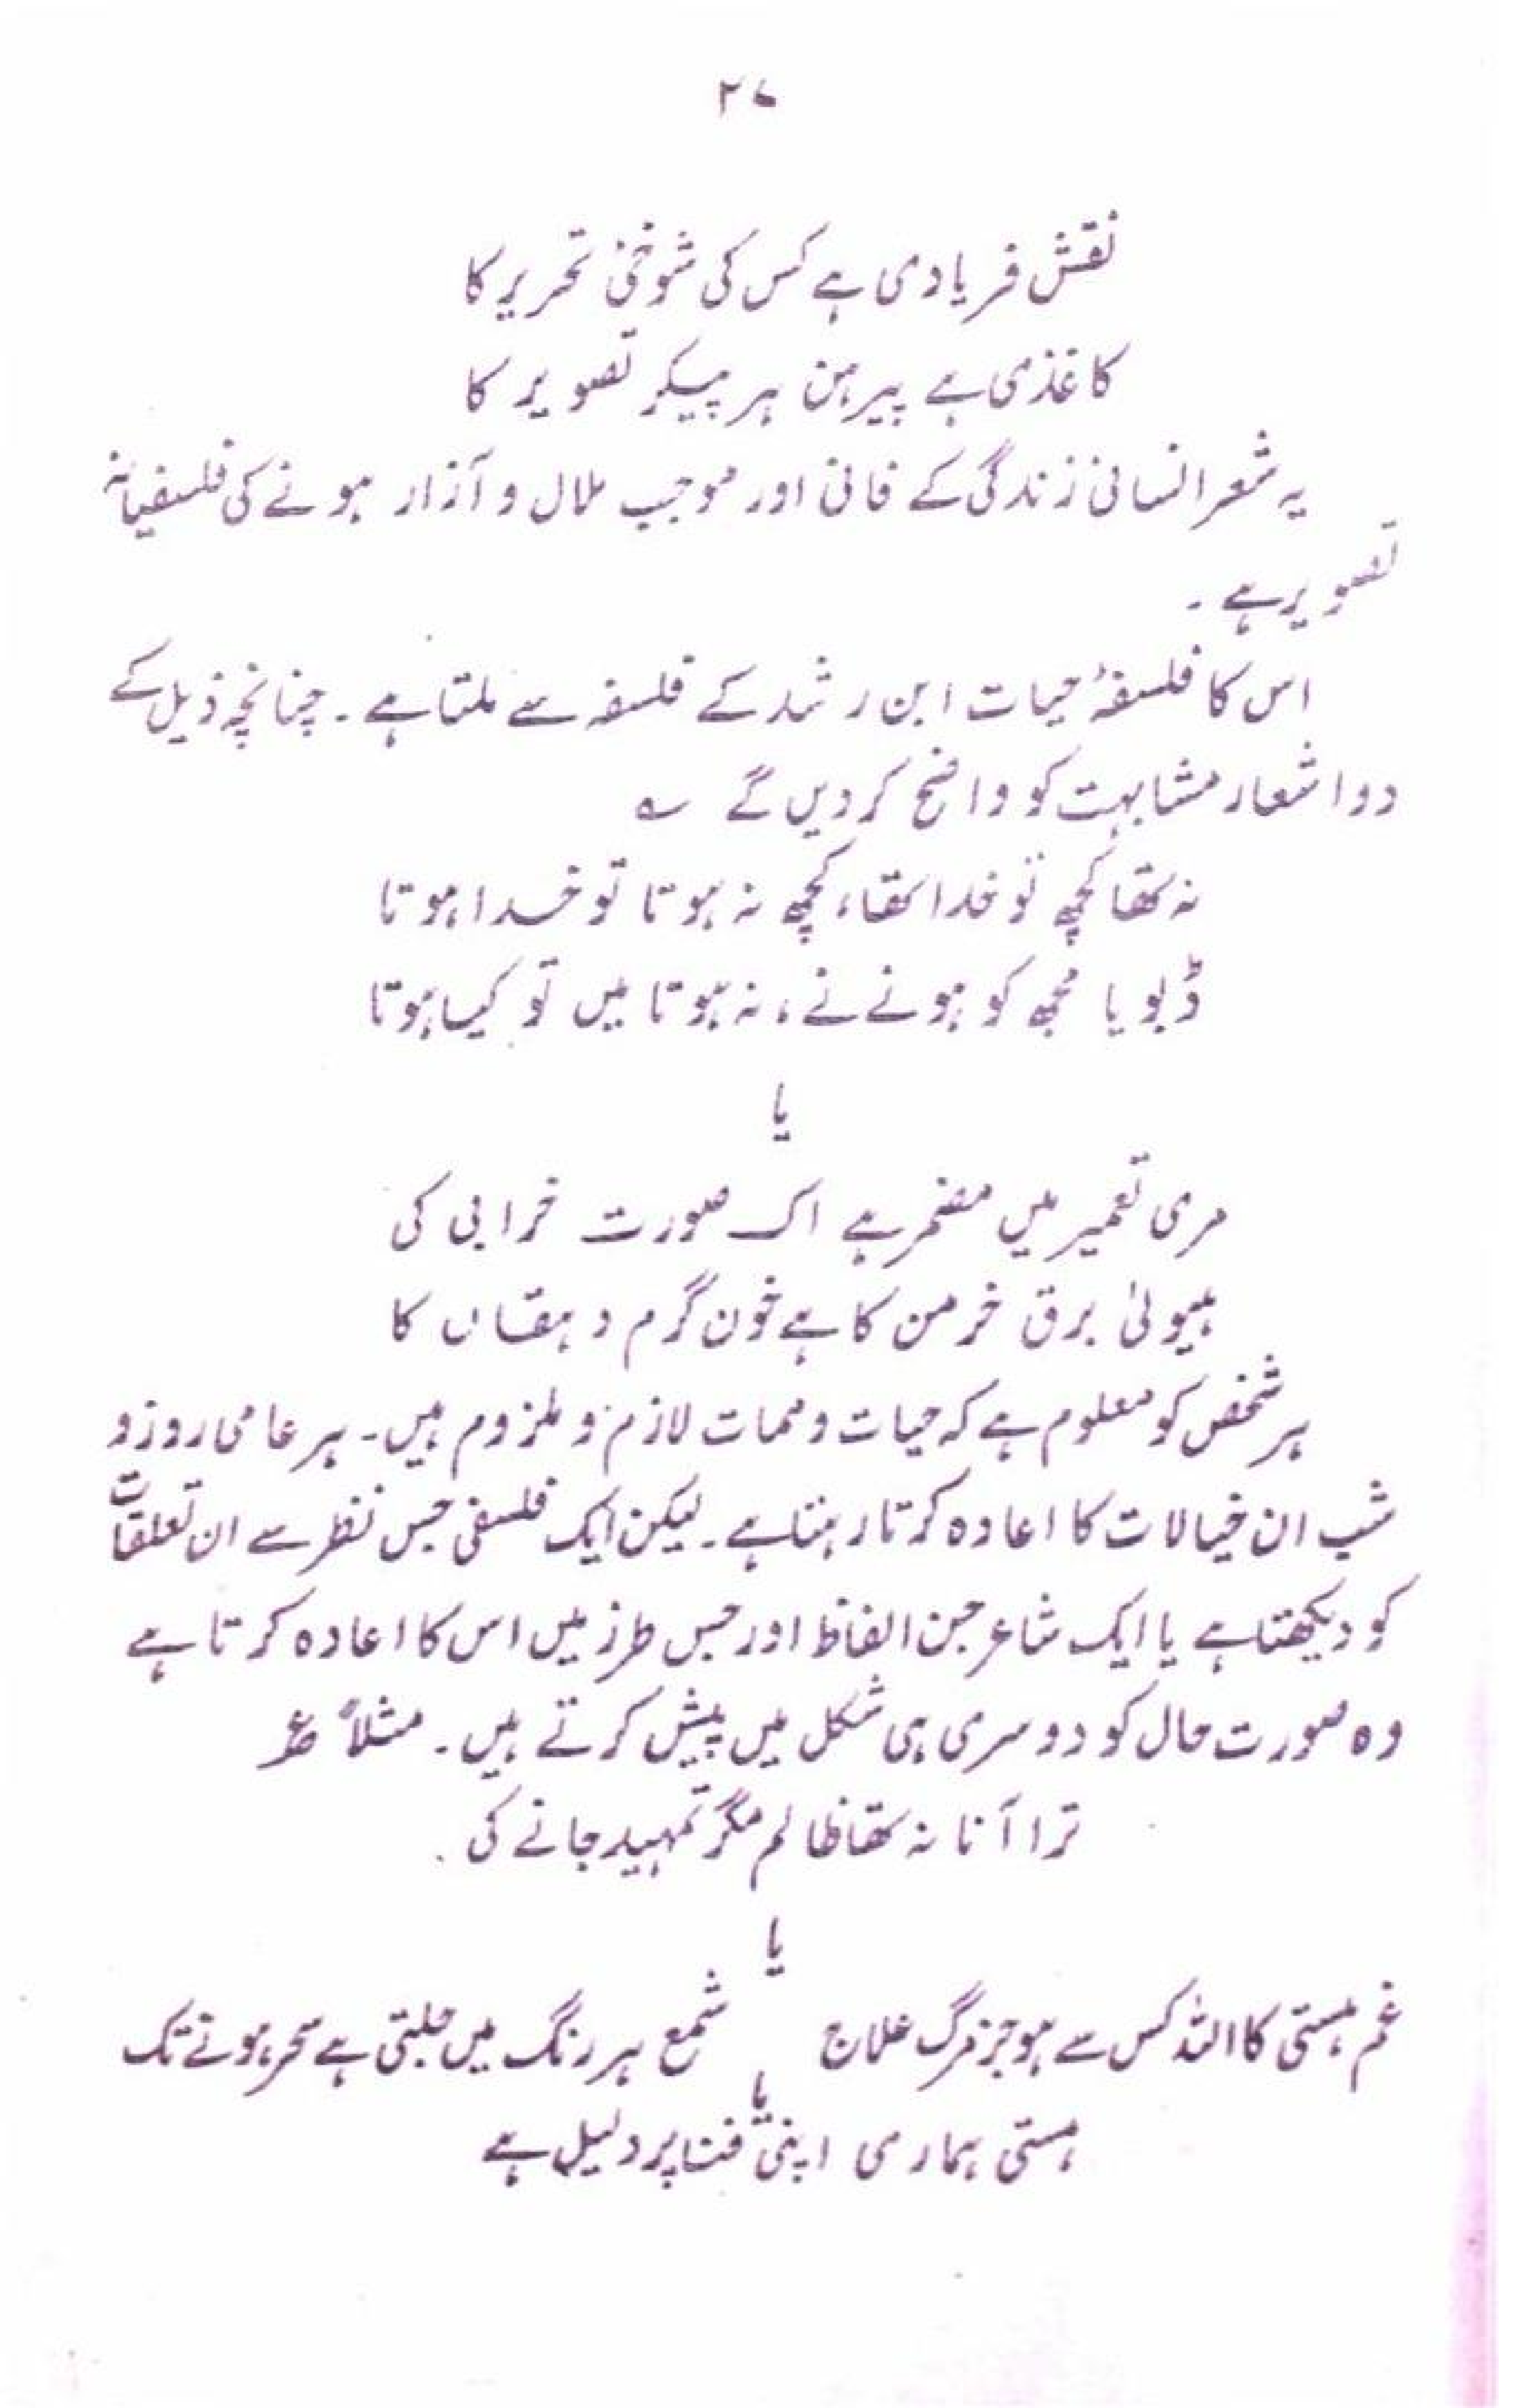 ۲۷
نقش فریادی ہے کس کی شوخیٔ تحریر کا
کاغذی ہے پیرہن ہر پیکرِ تصویر کا
یہ شعر انسانی زندگی کے فانی اور موجب ملال و آزار ہونے کی فلسفیانہ
تصویر ہے ۔
اس کا فلسفۂ حیات ابن رشد کے فلسفہ سے ملتا ہے ۔ چنانچہ ذیل کے
دو اشعار مشابہت کو واضح کر دیں گے ؎
نہ تھا کچھ تو خدا تھا، کچھ نہ ہوتا تو خدا ہوتا
ڈبویا مجھ کو ہونے نے، نہ ہوتا میں تو کیا ہوتا
یا
مری تعمیر میں مضمر ہے اک صورت خرابی کی
ہیولیٰ برق خرمن کا ہے خون گرم دہقاں کا
ہر شخص کو معلوم ہے کہ حیات و ممات لازم و ملزوم ہیں۔ ہر عامی روز و
شب ان خیالات کا اعادہ کرتا رہتا ہے ۔ لیکن ایک فلسفی جس نظر سے ان تعلقات
کو دیکھتا ہے یا ایک شاعر جن الفاظ اور جس طرز میں اس کا اعادہ کرتا ہے
وہ صورت حال کو دوسری ہی شکل میں پیش کرتے ہیں ۔ مثلاً ؏
ترا آنا نہ تھا ظالم مگر تمہید جانے کی
یا
غم ہستی کا اللہ کس سے ہو جز مرگ علاج شمع ہر رنگ میں جلتی ہے سحر ہونے تک
یا
ہستی ہماری اپنی فنا پر دلیل ہے